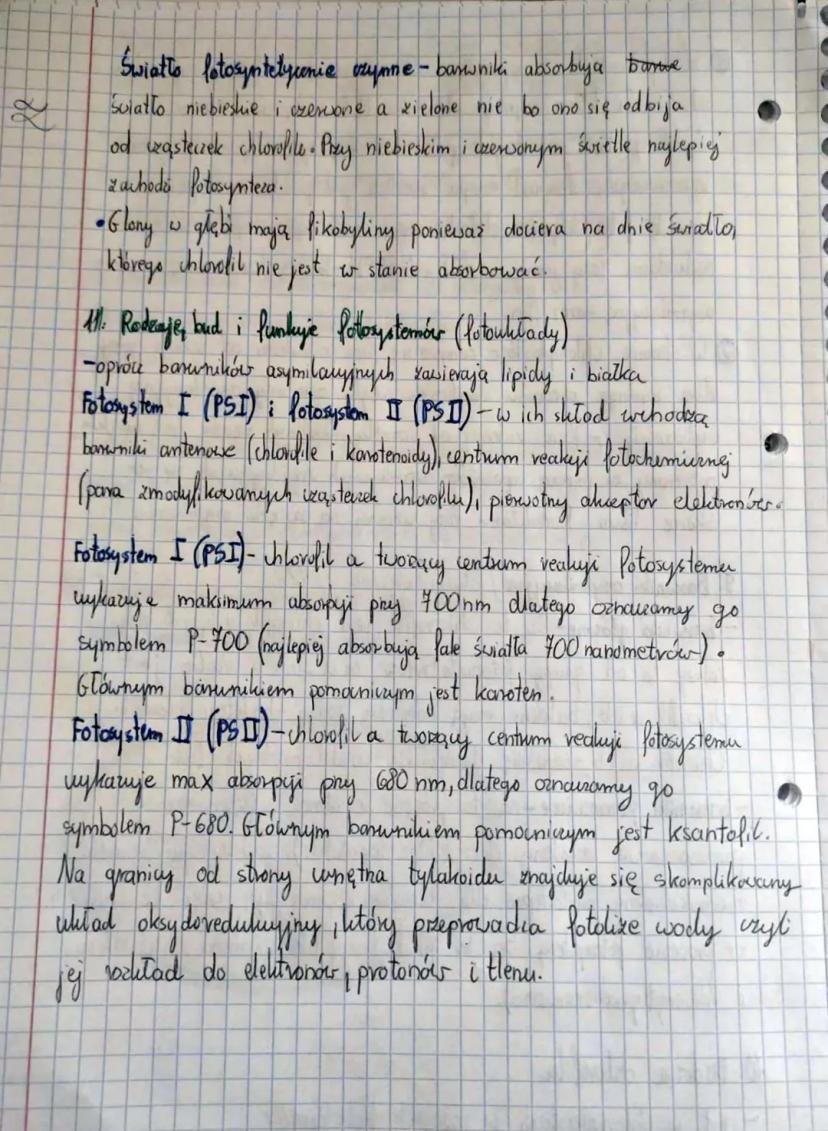 Światło fotosyntetycznie czynne - barwniki absorbują barwe
światło niebieskie i czerwone a zielone nie bo ono się odbija
od cząsteczek chlorofilu. Przy niebieskim i czerwonym świetle najlepiej
zachodzi fotosynteza.
• Glony w głębi mają fikobyliny ponieważ dociera na dnie światło,
którego chlorofil nie jest w stanie absorbować.
11. Rodzaje, bud i funkcje fotosystemów (fotoukłady)
-oprócz barwników asymilacyjnych zawierają lipidy i białka
Fotosystem I (PSI) i fotosystem II (PSII) - w ich skład wchodzą
barwniki antenowe (chlorofile i karotenoidy), centrum reakcji fotochemicznej
(para zmodyfikowanych cząsteczek chlorofilu), pierwotny akceptor elektronów.
Fotosystem I (PSI) - chlorofil a tworzący centrum reakcji fotosystemu
wykazuje maksimum absorpcji przy 700nm dlatego oznaczamy go
symbolem P-700 (najlepiej absorbują fale światła 700 nanometrów).
Głównym barwnikiem pomocniczym jest karoten.
Fotosystem II (PSII) - chlorofil a tworzący centrum reakcji fotosystemu
wykazuje max absorpcji przy 680 nm, dlatego oznaczamy go
symbolem P-680. Głównym barwnikiem pomocniczym jest ksantofil.
Na granicy od strony wnętrza tylakoidu znajduje się skomplikowany
układ oksydoredukcyjny, który przeprowadza fotolize wody czyli
jej rozkład do elektronów, protonów i tlenu.